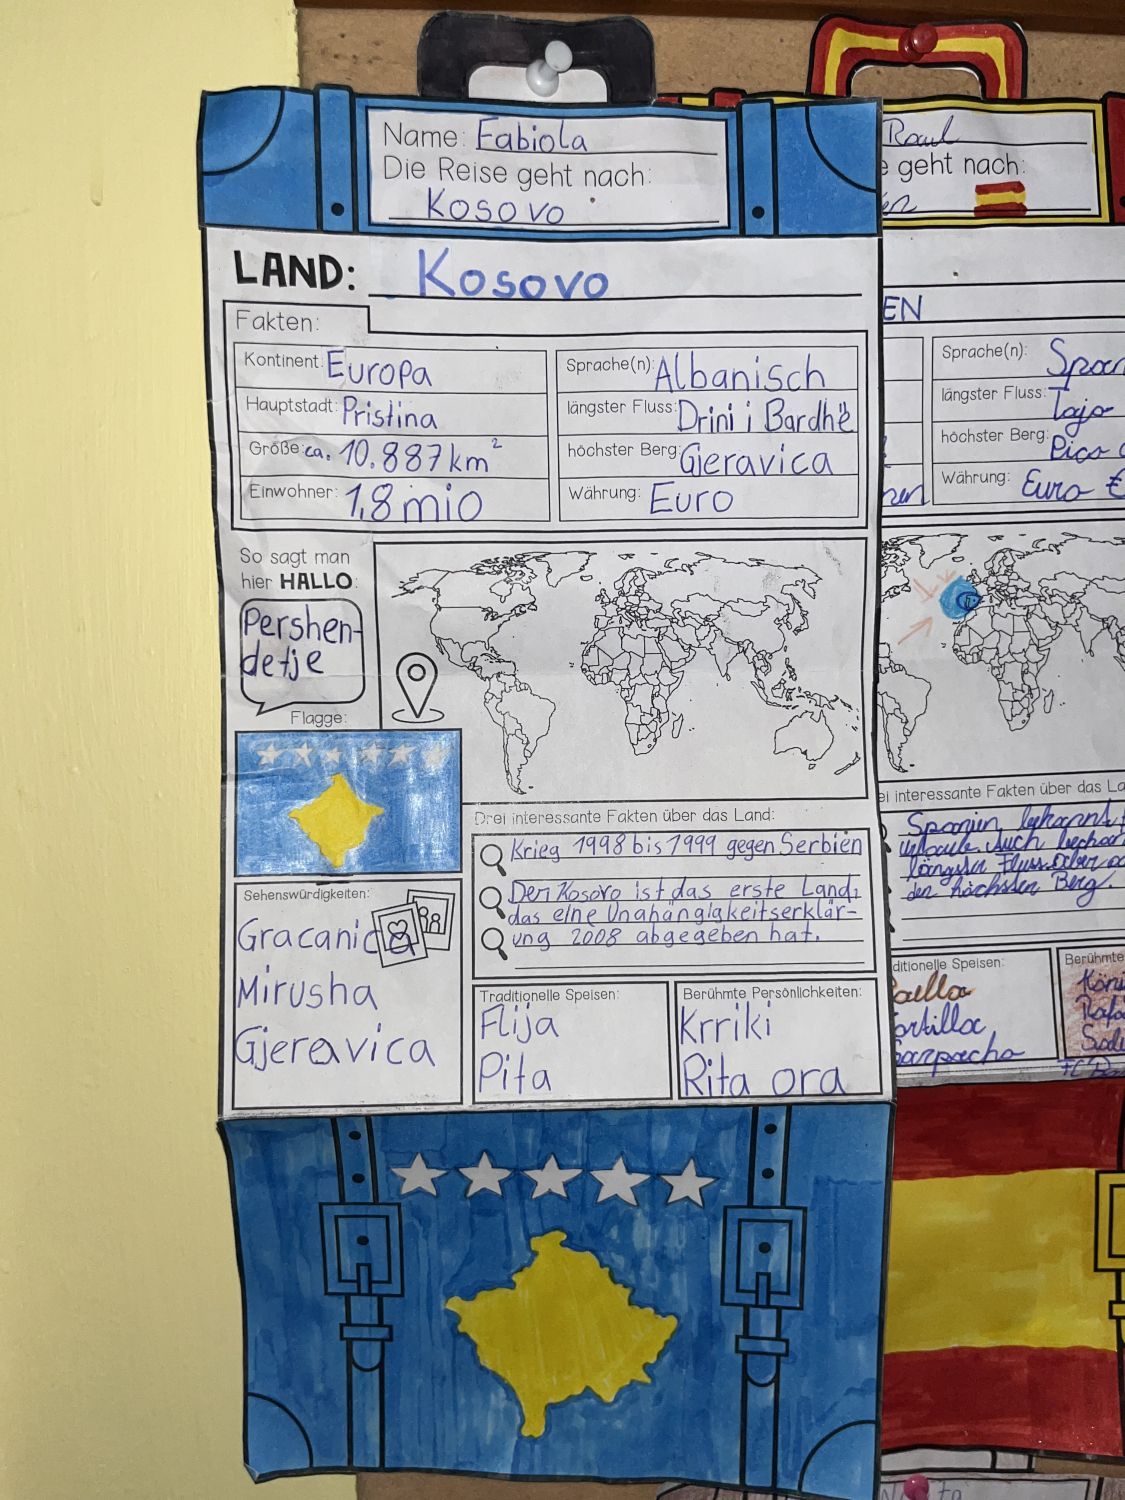 Name: Fabiola
Die Reise geht nach:
Kosovo
LAND: Kosovo
Fakten:
Kontinent: Europa
Hauptstadt: Pristina
Größe: ca. 10.887 km²
Einwohner: 1,8 mio
Sprache(n): Albanisch
längster Fluss: Drini i Bardhë
höchster Berg: Gjeravica
Währung: Euro
So sagt man
hier HALLO:
Pershen-
detje
Flagge:
Sehenswürdigkeiten:
Gracanica
Mirusha
Gjeravica
Drei interessante Fakten über das Land:
Krieg 1998 bis 1999 gegen Serbien
Der Kosovo ist das erste Land,
das eine Unahängigkeitserklär-
ung 2008 abgegeben hat.
Traditionelle Speisen:
Flija
Pita
Berühmte Persönlichkeiten:
Krriki
Rita ora
Raul
e geht nach:
EN
Sprache(n): Span
längster Fluss: Tajo
höchster Berg: Pico
Währung: Euro €
ei interessante Fakten über das La
Spanien bekannt
längster Fluss
der höchsten Berg.
ditionelle Speisen:
aella
ortilla
Gazpacho
Berühmte
Köni
Rafa